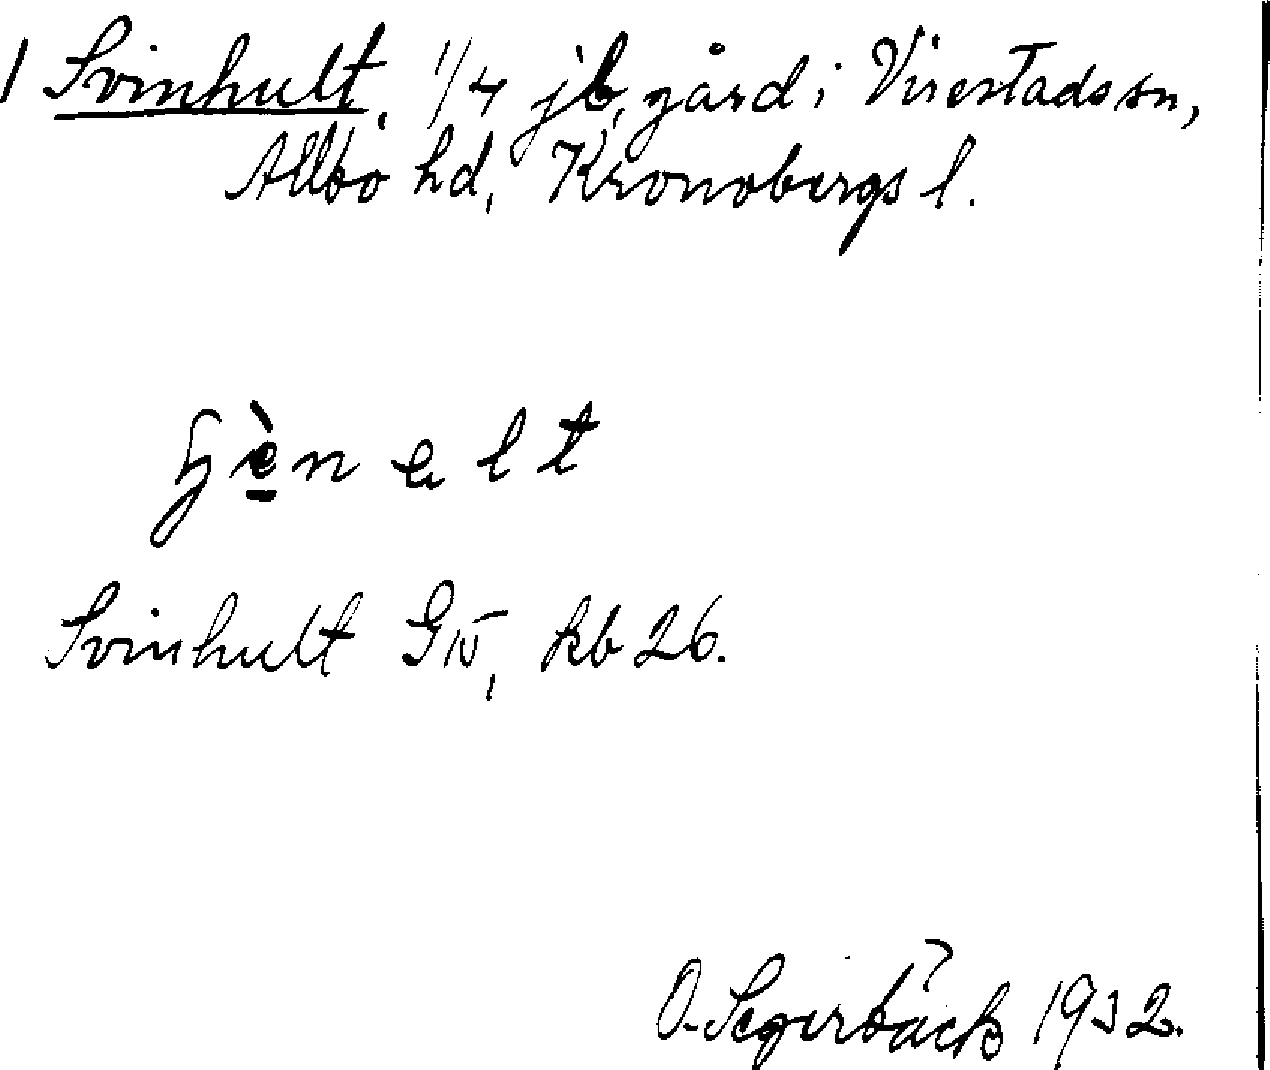 1 Svinhult, 1/4 jb, gård i Virestads sn,
Allbo hd, Kronobergs l.
Svinhult GK, kb 26.
O. Segerbäck 1932.